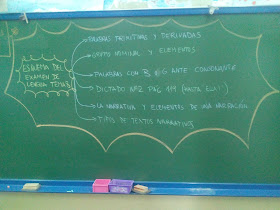 PALABRAS PRIMITIVAS Y DERIVADAS
GRUPO NOMINAL Y ELEMENTOS
ESQUEMA DEL
EXAMEN DE
LENGUA TEMA 5
PALABRAS CON B Ó G ANTE CONSONANTE
DICTADO Nº2 PÁG 199 (HASTA ELLA!)
LA NARRATIVA Y ELEMENTOS DE UNA NARRACIÓN
TIPOS DE TEXTOS NARRATIVOS